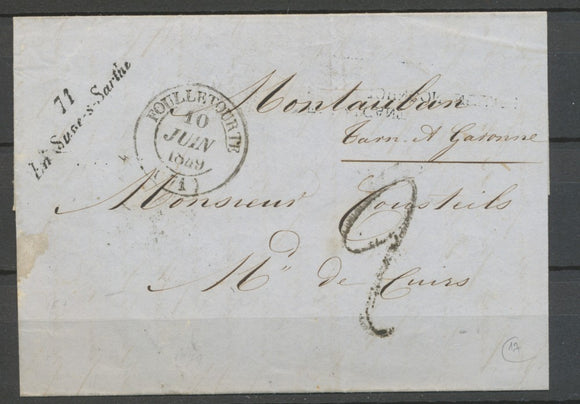 71
La Suze-s-Sarthe
FOULLETOURTE
10
JUIN
1849
(71)
Montauban
Tarn et Garonne
Monsieur
Md de Cuirs
2
17